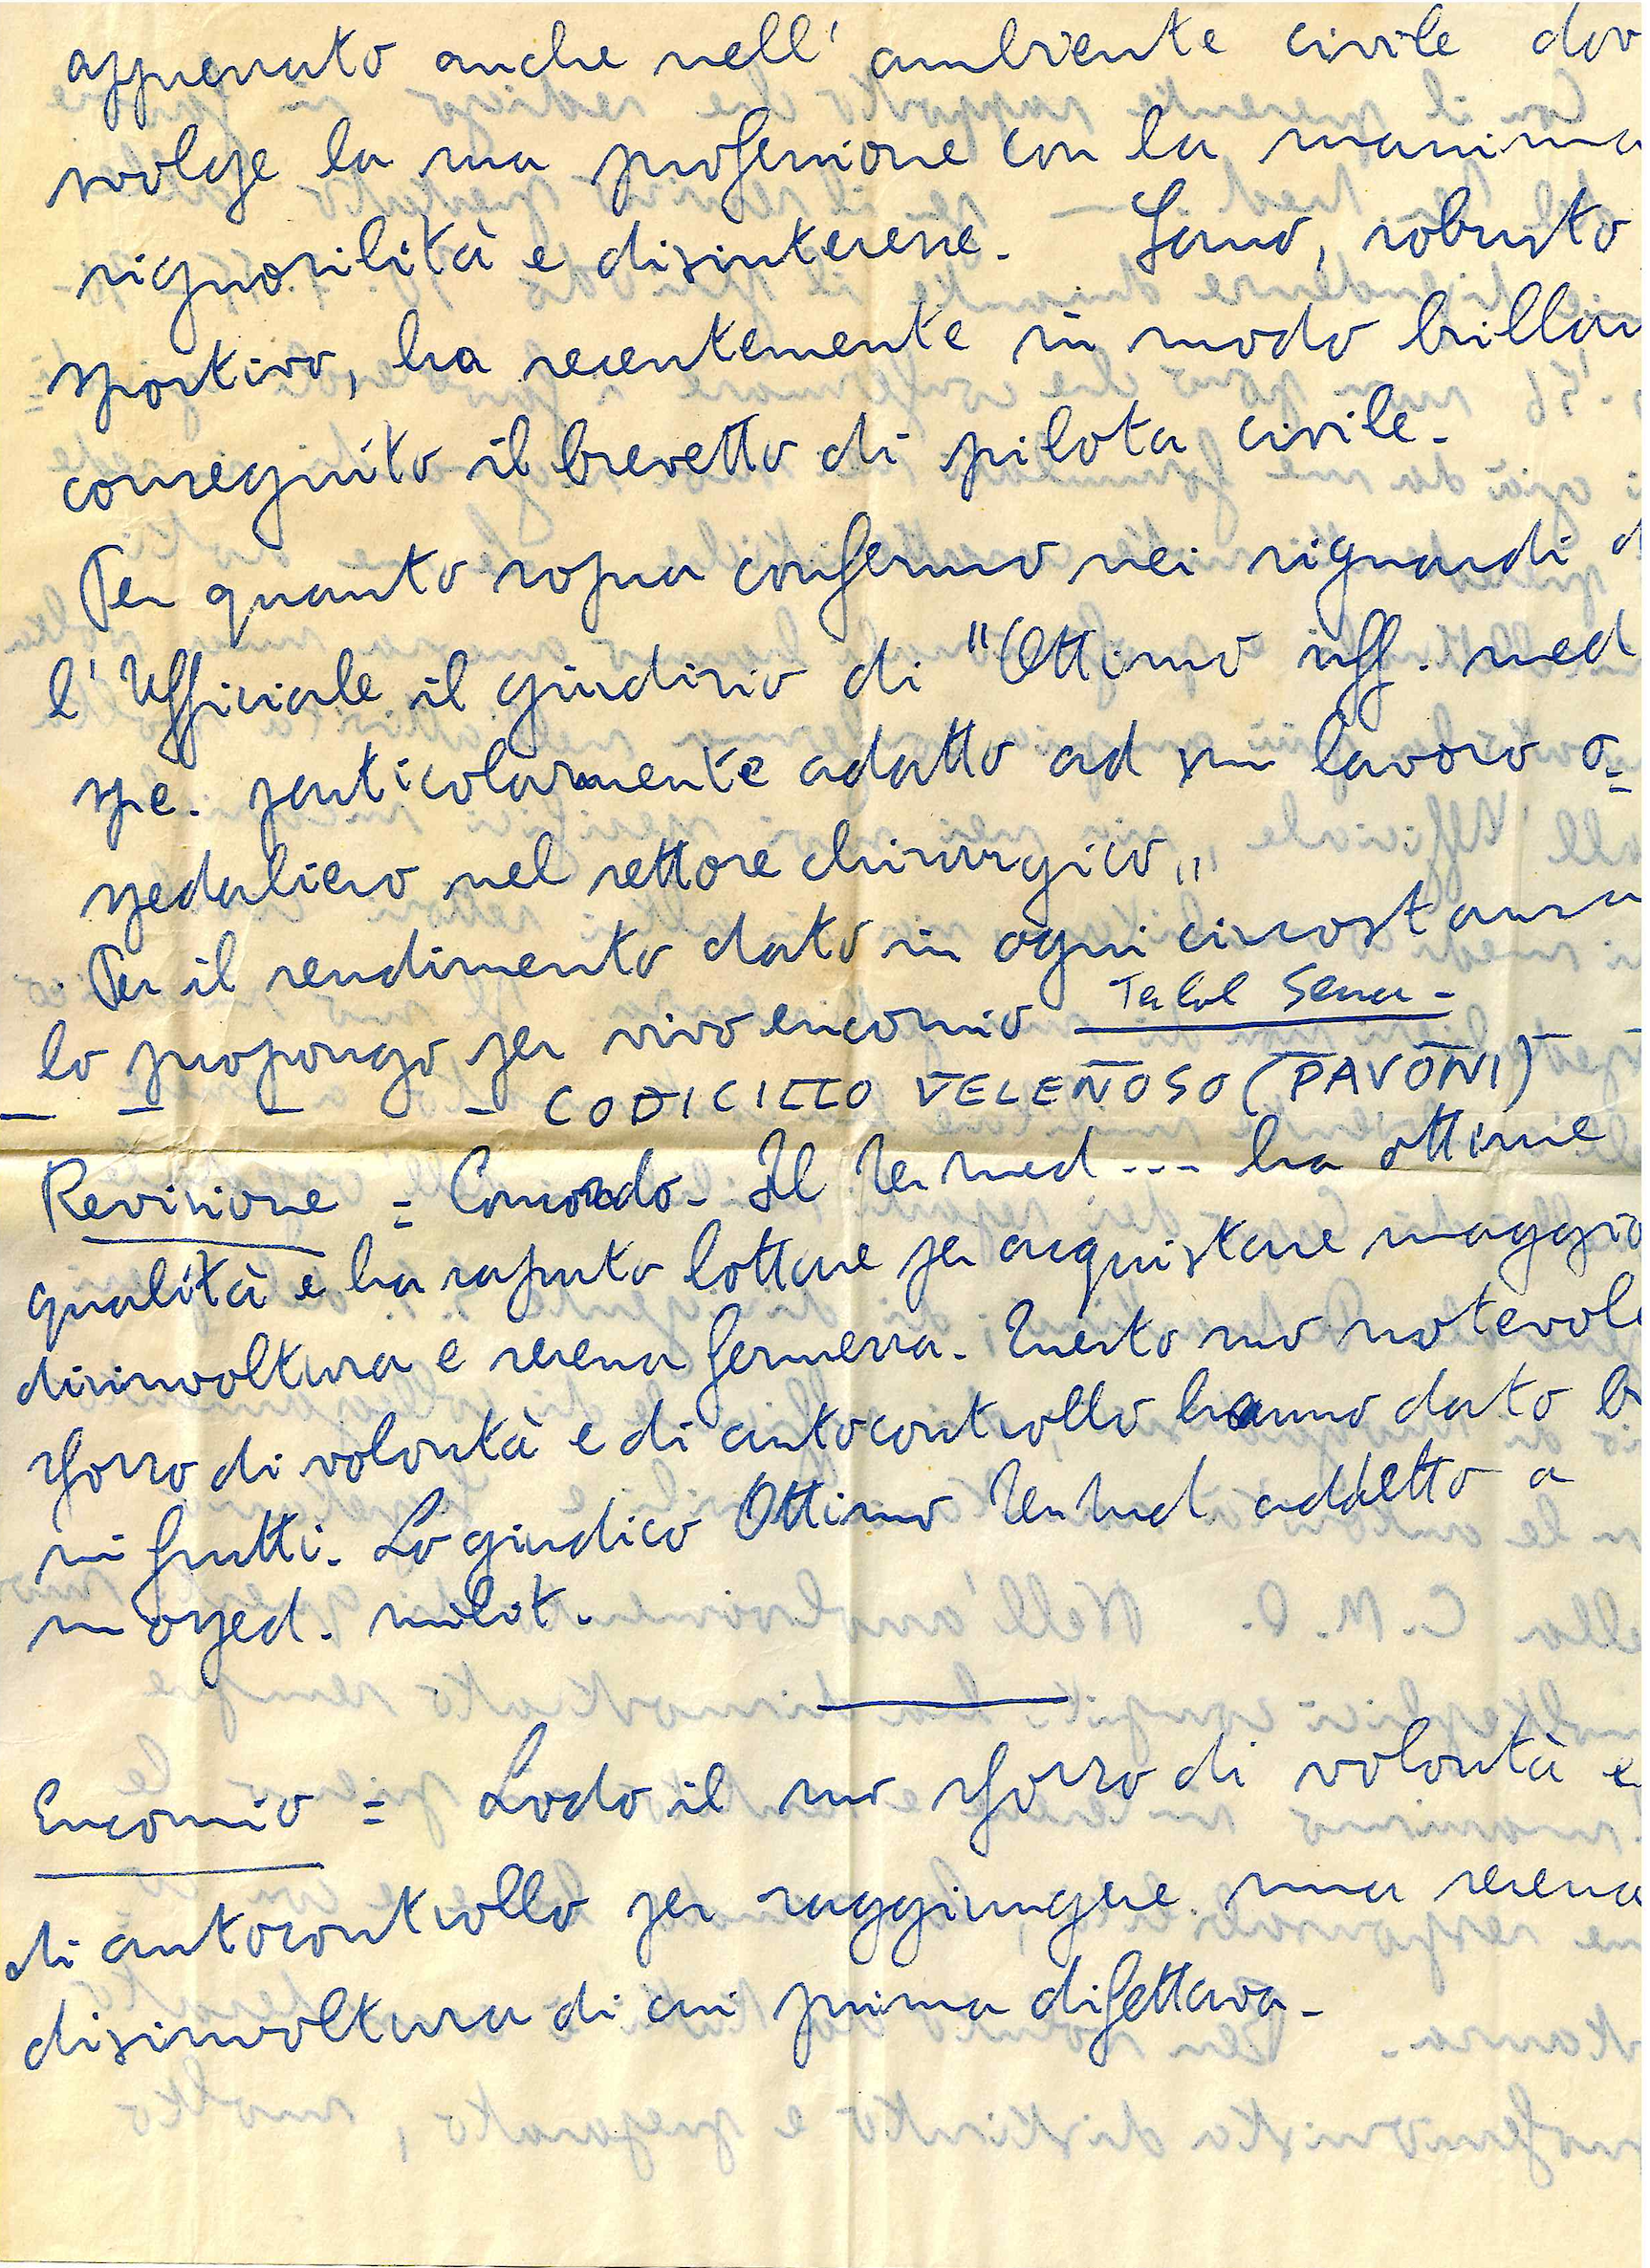 apprezzato anche nell' ambiente civile dov
svolge la sua professione con la massima
signorilità e disinteresse. Sano, robusto
sportivo, ha recentemente in modo brillan
conseguito il brevetto di pilota civile.
Per quanto sopra confermo nei riguardi d
l' Ufficiale il giudizio di "Ottimo uff. med
spe. particolarmente adatto ad un lavoro o=
spedaliero nel settore chirurgico"
Per il rendimento dato in ogni circostanza
lo propongo per vivo encomio
CODICILLO VELENOSO (PAVONI)
Revisione = Concordo - Il Ten med --- ha ottime
qualità e ha saputo lottare per acquistare maggio
disinvoltura e serena fermezza. Questo suo notevole
sforzo di volontà e di autocontrollo hanno dato b
ni frutti. Lo giudico Ottimo Ten Med addetto a
un osped. milit.
Encomio = Lodo il suo sforzo di volontà e
di autocontrollo per raggiungere una serena
disinvoltura di cui prima difettava-